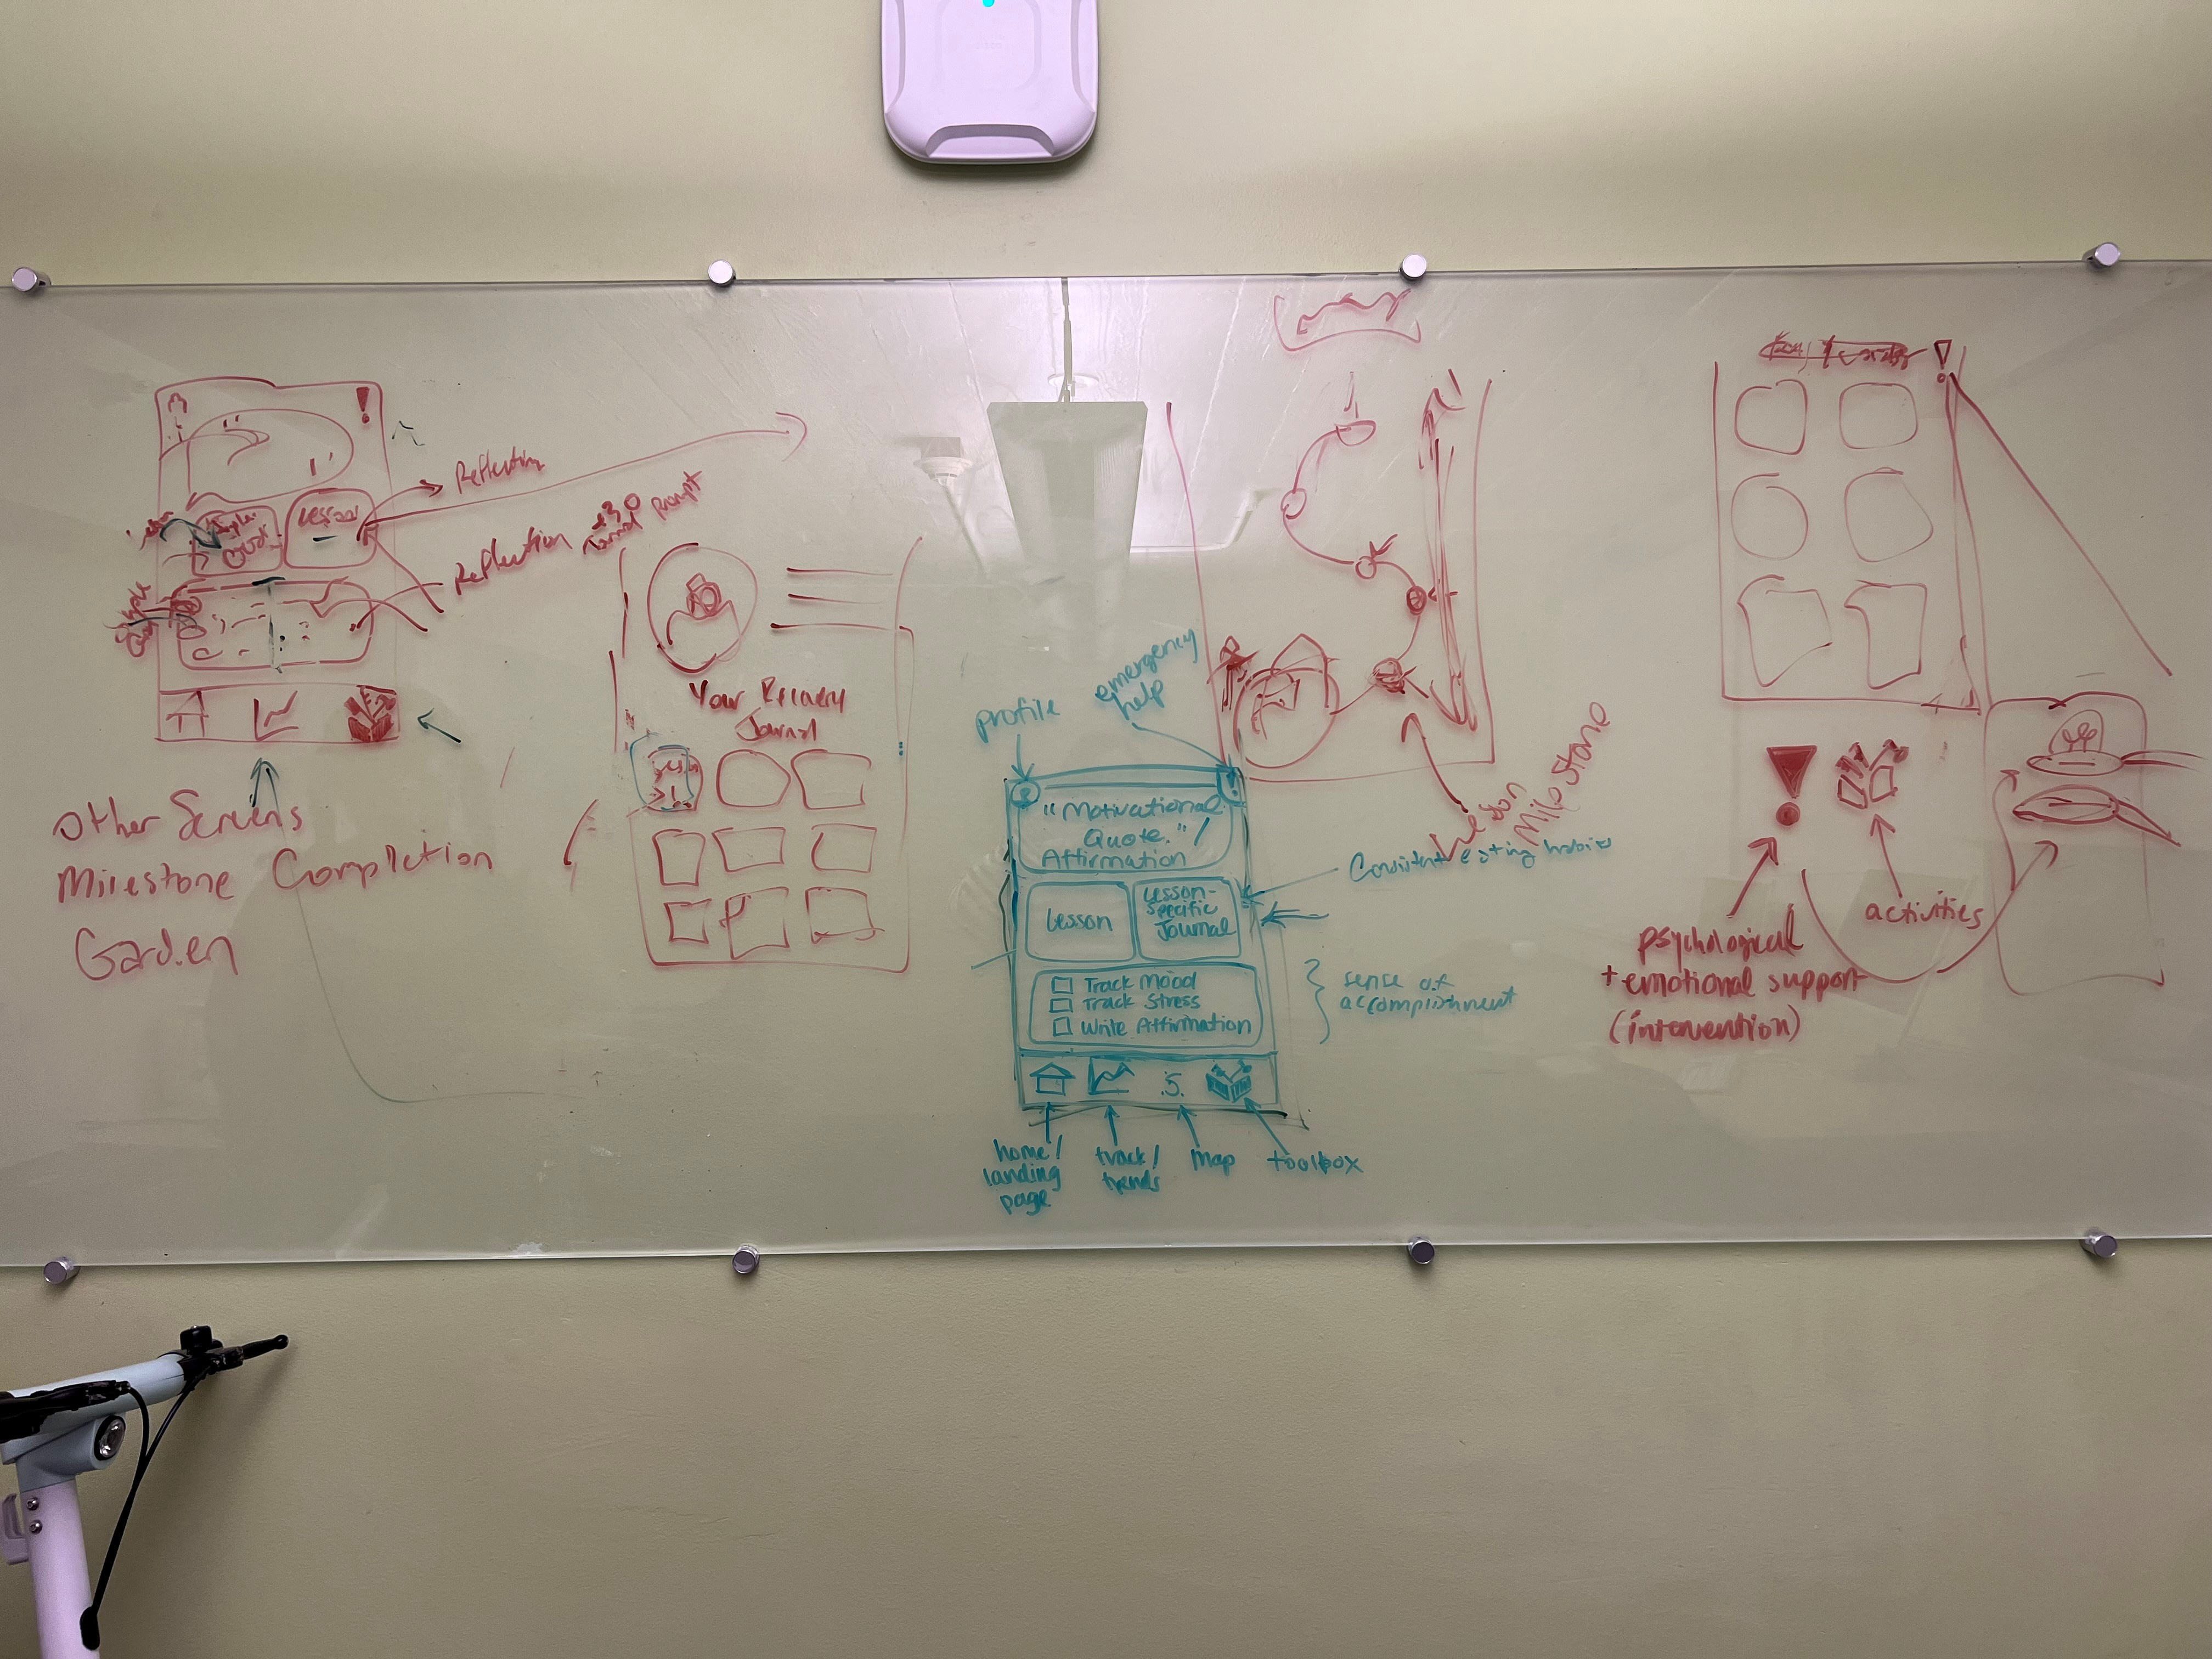 Lesson
Reflection
Reflection
Journal prompt
Other Screens
Milestone Completion
Garden
Your Recovery
Journal
profile
emergency
help
"Motivational
Quote."/
Affirmation
Lesson
Lesson-
Specific
Journal
Track Mood
Track Stress
Write Affirmation
home/
landing
page
track/
trends
map
toolbox
Consistent eating habits
sense of
accomplishment
Lesson
Milestone
psychological
+ emotional support
(intervention)
activities